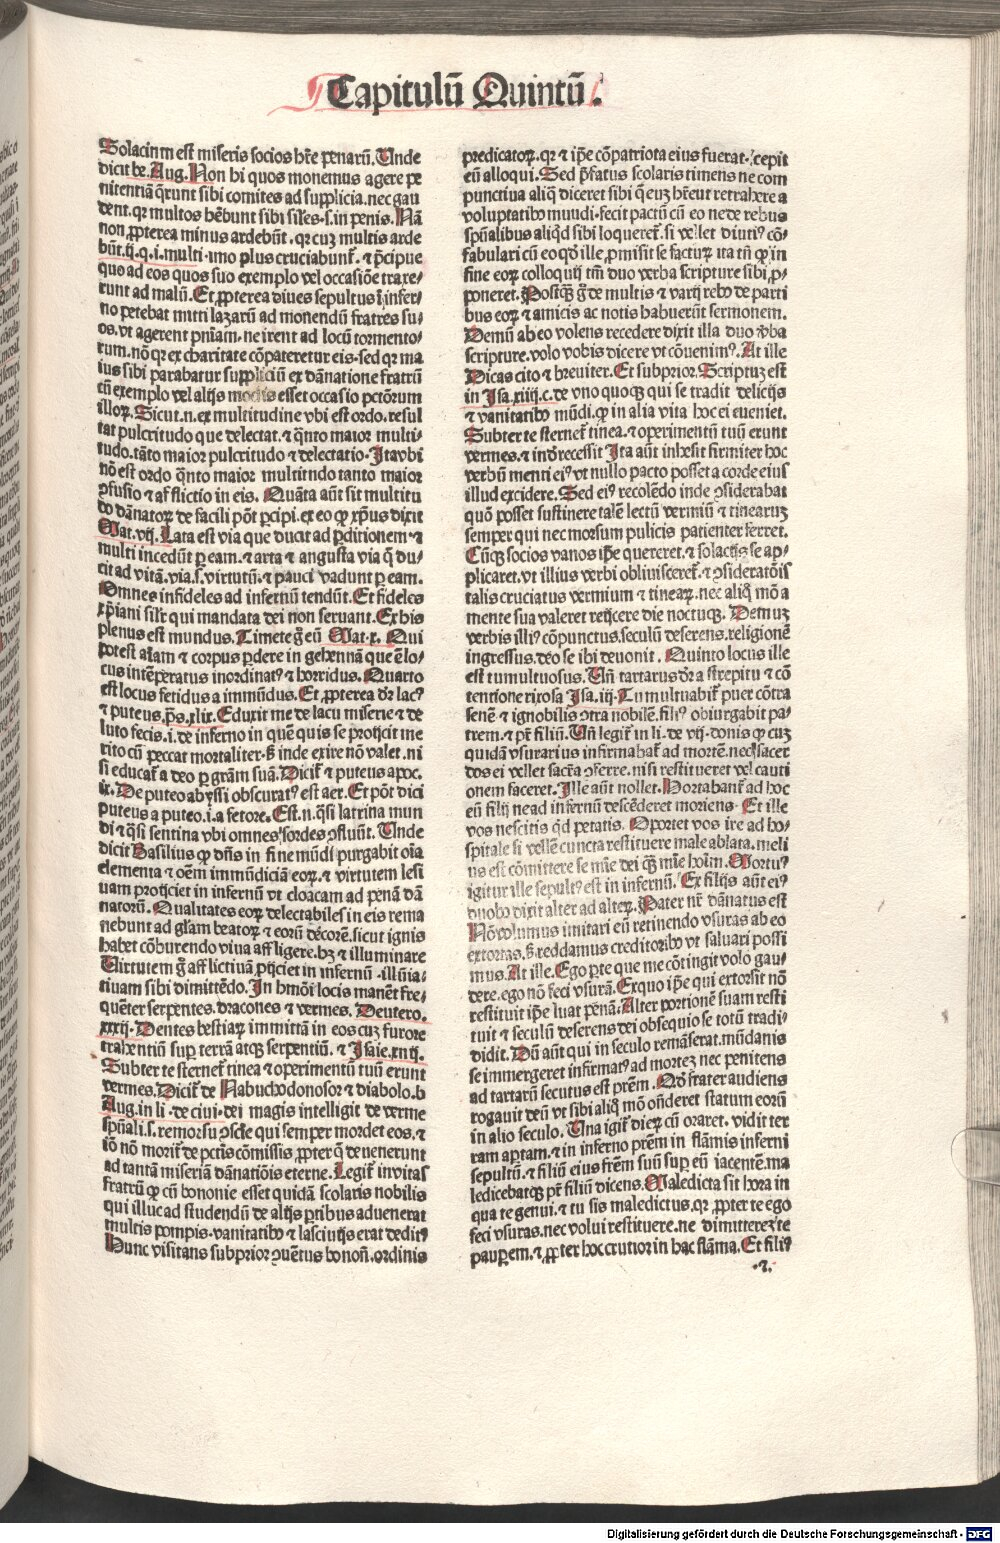 Capitulū Quintū.
Solacium est miseris socios hr̄e penarū. Unde
dicit be. Aug. Non hi quos monemus agere pe
nitentiā q̄runt sibi comites ad supplicia. nec gau
dent. qr multos hēbunt sibi siłes. s. in penis. Nā
non ꝓpterea minus ardebūt. qr cuꝫ multis arde
būt. ij. q. i. multi. imo plus cruciabunt᷑. & p̄cipue
quo ad eos quos suo exemplo vel occasiōe traxe-
runt ad malū. Et ꝓpterea diues sepultus ī infer-
no petebat mitti lazarū ad monendū fratres su-
os. vt agerent pn̄iam. ne irent ad locū tormento-
rum. nō qr ex charitate cōpateretur eis. sed qr ma
ius sibi parabatur suppliciū ex dānatione fratrū
cū exemplo vel alijs modis esset occasio pctōrum
illoꝝ. Sicut. n. ex multitudine vbi est ordo. resul
tat pulcritudo que delectat. & q̄nto maior multi-
tudo. tāto maior pulcritudo & delectatio. Ita vbi
nō est ordo q̄nto maior multitudo tanto maior
ꝯfusio & afflictio in eis. Quāta aūt sit multitu
do dānatoꝝ de facili pōt ꝑcipi. ex eo ꝙ xp̄us dixit
Mat. vij. Lata est via que ducit ad ꝑditionem &
multi incedūt ꝑ eam. & arta & angusta via q̄ du-
cit ad vitā. via. s. virtutū. & pauci vadunt ꝑ eam.
Omnes infideles ad infernū tendūt. Et fideles
xp̄iani silr̄ qui mandata dei non seruant. Ex his
plenus est mundus. Timete g̊ eū Mat. x. Qui
potest aīam & corpus ꝑdere in gehennā que ē lo-
cus intēperatus inordinatꝰ & horridus. Quarto
est locus fetidus a immūdus. Et ꝓpterea dr̄ lacꝰ
& puteus. ps̄. xlix. Eduxit me de lacu miserie & de
luto fecis. i. de inferno in quē quis se proijcit me
rito cū peccat mortaliter. s̄ inde exire nō valet. ni
si educat᷑ a deo ꝑ grām suā. Dicit᷑ & puteus apoc.
ix. De puteo abyssi obscuratꝰ est aer. Et pōt dici
puteus a puteo. i. a fetore. Est. n. q̄si latrina mun
di & q̄si sentina vbi omnes sordes ꝯfluūt. Unde
dicit Basilius ꝙ dn̄s in fine mūdi purgabit oīa
elementa & oēm immūdiciā eoꝝ. & virtutem lesi
uam proijciet in infernū vt cloacam ad penā dā
natorū. Qualitates eoꝝ delectabiles in eis rema
nebunt ad gl̄am beatoꝝ & eorū decorē. sicut ignis
habet cōburendo viua affligere. hꝫ & illuminare
Uirtutem g̊ afflictiuā ꝓijciet in infernū. illuīa-
tiuam sibi dimittēdo. In hmōi locis manēt fre-
quēter serpentes. dracones & vermes. Deutero.
xxxij. Dentes bestiaꝝ immittā in eos cuꝫ furore
trahentiū suꝑ terrā atqꝫ serpentiū. & Isaie. xiiij.
Subter te sternet᷑ tinea & operimentū tuū erunt
vermes. Dicit᷑ de Nabuchodonosor & diabolo. b
Aug. in li. de ciui. dei magis intelligit de verme
spūali. s. remorsu ꝯscīe qui semper mordet eos. &
iō nō morit᷑ de pctīs cōmissis ꝓpter q̄ deuenerunt
ad tantā miseriā dānatiōis eterne. Legit᷑ in vitas
fratrū ꝙ cū bononie esset quidā scolaris nobilis
qui illuc ad studendū de alijs ꝑtibus aduenerat
multis pompis. vanitatibꝰ & lasciuijs erat deditꝰ
Hunc visitans subprior ꝯuētus bonoñ. ordinis
predicatoꝝ. qr & ip̄e cōpatriota eius fuerat. cepit
eū alloqui. Sed p̄fatus scolaris timens ne com
punctiua aliq̄ diceret sibi q̄ euꝫ hr̄ent retrahere a
voluptatibꝰ mūdi. fecit pactū cū eo ne de rebus
spūalibus aliqd sibi loqueret᷑. si vellet diutiꝰ cō-
fabulari cū eo qd̓ ille ꝓmisit se facturꝫ ita tn̄ ꝙ in
fine eoꝝ colloquij tm̄ duo verba scripture sibi ꝓ-
poneret. Postqꝫ g̊ de multis & varijs rebꝰ de parti
bus eoꝝ & amicis ac notis habuerūt sermonem.
Demū ab eo volens recedere dixit illa duo v̓ba
scripture. volo vobis dicere vt cōuenimꝰ. At ille
Dicas cito & breuiter. Et subprior. Scriptuꝫ est
in Isa. xiiij. c. de vno quoqꝫ qui se tradit delicijs
& vanitatibꝰ mūdi. ꝙ in alia vita hoc ei eueniet.
Subter te sternet᷑ tinea. & operimentū tuū erunt
vermes. & ind̓ recessit Ita aūt inhesit firmiter hoc
verbū menti eiꝰ vt nullo pacto posset a corde eius
illud excidere. Sed eiꝰ recolēdo inde ꝯsiderabat
quō posset sustinere talē lectū vermiū & tinearuꝫ
semper qui nec morsum pulicis patienter ferret.
Cūqꝫ socios vanos ip̄e quereret. & solacijs se ap-
plicaret. vt illius verbi obliuisceret᷑. & ꝯsideratōis
talis cruciatus vermium & tineaꝝ. nec aliq̄ mō a
mente sua valeret reijcere die noctuqꝫ. Demuꝫ
verbis illiꝰ cōpunctus. seculū deserens. religionē
ingressus. deo se ibi deuouit. Quinto locus ille
est tumultuosus. Un̄ tartarus dr̄ a strepitu & cō
tentione rixosa Isa. iij. Tumultuabit᷑ puer cōtra
senē & ignobilis ꝯtra nobilē. filiꝰ obiurgabit pa-
trem. & pr̄ filiū. Un̄ legit᷑ in li. de vij. donis ꝙ cuꝫ
quidā vsurarius infirmabat᷑ ad mortē. neqꝫ sacer
dos ei vellet sacr̄a ꝯferre. nisi restitueret vel cauti
onem faceret. Ille aūt nollet. Hortabant᷑ ad hoc
eū filij ne ad infernū descēderet moriens. Et ille
vos nescitis qd petatis. Oportet vos ire ad ho-
spitale si vellē cuncta restituere male ablata. meli
us est cōmittere se mīe dei qꝫ mīe hoīm. Mortuꝰ
igitur ille sepultꝰ est in infernū. Ex filijs aūt eiꝰ
duobꝰ dixit alter ad alteꝝ. Pater nr̄ dānatus est
Nō volumus imitari eū retinendo vsuras ab eo
extortas. s̄ reddamus creditoribꝰ vt saluari possi
mus. At ille. Ego ꝑ te que me cōtingit volo gau-
dere. ego nō feci vsurā. Ex quo ip̄e qui extorsit nō
restituit ip̄e luat penā. Alter portionē suam resti
tuit & seculū deserens dei obsequio se totū tradi-
didit. Dū aūt qui in seculo remāserat. mūdanis
se immergeret infirmatꝰ ad mortez nec penitens
ad tartarū secutus est pr̄em. Qd̓ frater audiens
rogauit deū vt sibi aliq̄ mō oñderet statum eorū
in alio seculo. Una igit᷑ dieꝝ cū oraret. vidit ter
ram aꝑtam. & in inferno pr̄em in flāmis inferni
sepultū. & filiū eius fr̄em suū suꝑ eū iacentē. ma
ledicebatqꝫ pr̄ filiū dicens. Maledicta sit hora in
qua te genui. & tu sis maledictus. qr ꝓpter te ego
feci vsuras. nec volui restituere. ne dimitterez te
pauꝑem. & ꝓpter hoc crucior in hac flāma. Et filiꝰ
·r.
Digitalisierung gefördert durch die Deutsche Forschungsgemeinschaft - DFG